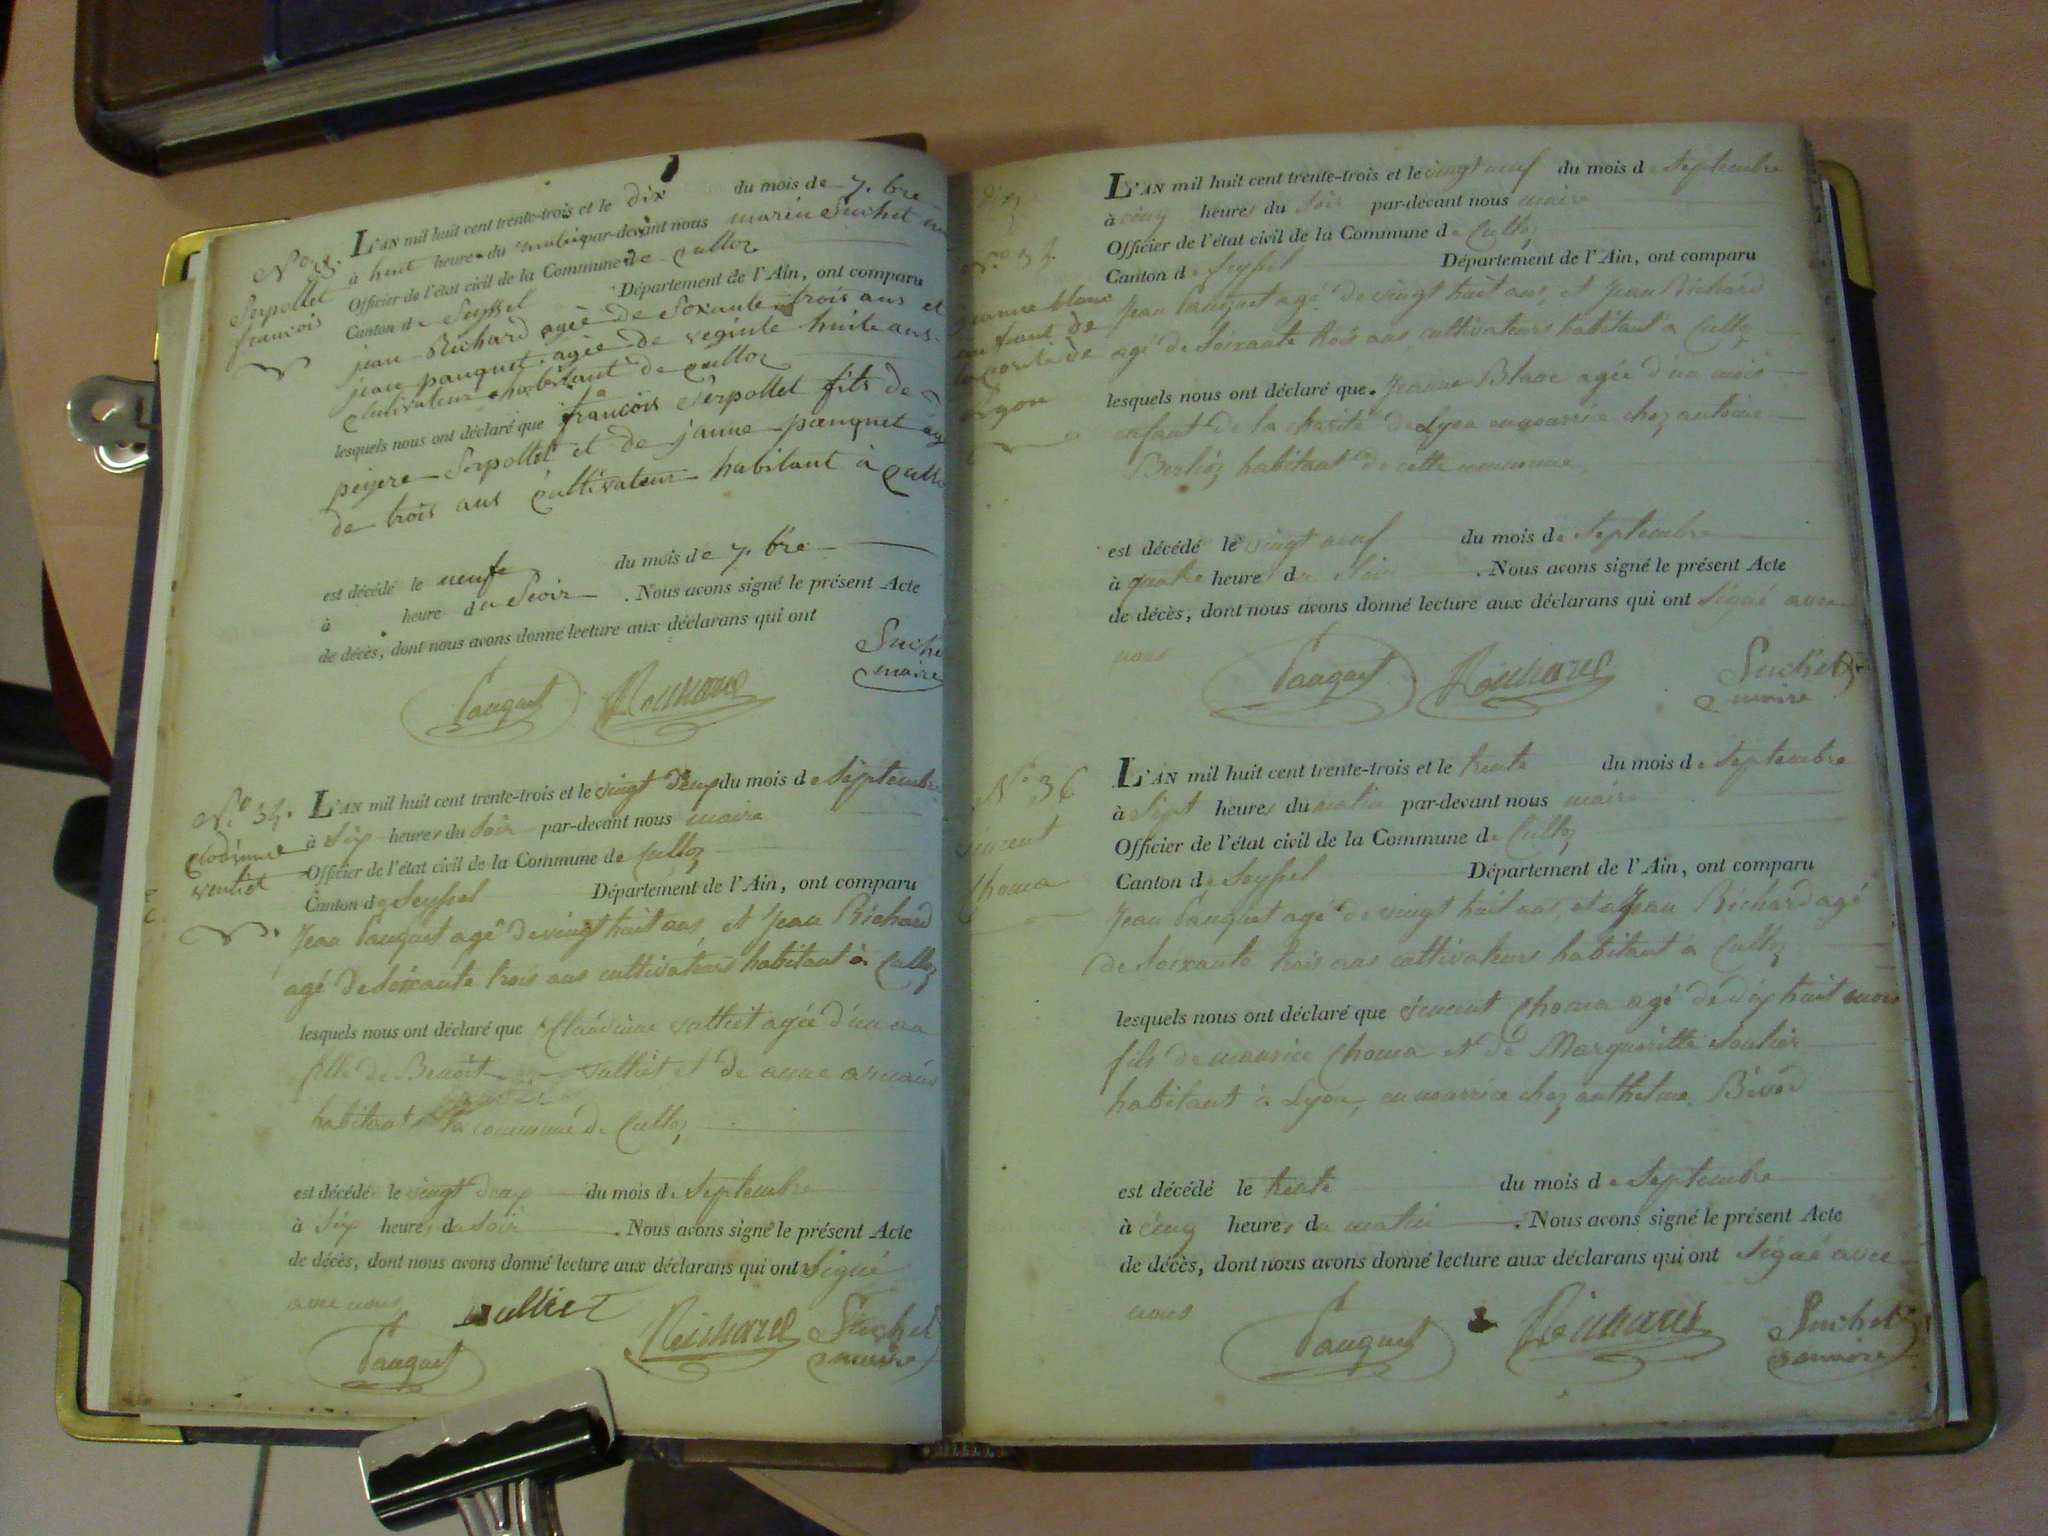 L'AN mil huit cent trente-trois et le dix du mois de 7.bre
à huit heure du matin par-devant nous marin Suchet
Officier de l'état civil de la Commune de Culloz
Canton de Seyssel Département de l'Ain, ont comparu
Serpollet
francois
jean Richard agèe de Soxante trois ans et
jean pauquet agèe de veginte huite ans
habitant de Culloz
lesquels nous ont déclaré que francois Serpollet fits de
Serpollet et de janne pauquet
de trois ans Cultivateur habitant à
est décédé le neufe du mois de 7.bre
à heure du Seoir . Nous avons signé le présent Acte
de décès, dont nous avons donné lecture aux déclarans qui ont
Suchet
maire
Pauquet Richard
N.o 34.
L'AN mil huit cent trente-trois et le vingt deux du mois de Septembre
à Six heures du Soir par-devant nous maire
Officier de l'état civil de la Commune de Culloz
Canton de Seyssel Département de l'Ain, ont comparu
Jean Pauquet agé de vingt huit ans et Jean Richard
agé de soixante trois ans cultivateurs habitant à Culloz
lesquels nous ont déclaré que Claudine vulliet agée d'un an
fille de Benoit vulliet et de anne
habitant la commune de Culloz
est décédé le vingt deux du mois de Septembre
à Six heures du Soir . Nous avons signé le présent Acte
de décès, dont nous avons donné lecture aux déclarans qui ont Signé
avec nous vulliet Richard Suchet
Pauquet maire
L'AN mil huit cent trente-trois et le vingt neuf du mois de Septembre
à cinq heures du Soir par-devant nous maire
Officier de l'état civil de la Commune de Culloz
Canton de Seyssel Département de l'Ain, ont comparu
N.o 35.
jeanne blanc
enfant de
la carité de
Lyon
Jean Pauquet agé de vingt huit ans, et Jean Richard
agé de Soixante trois ans cultivateurs habitant à Culloz
lesquels nous ont déclaré que Jeanne Blanc agée d'un mois
enfant de la charité de Lyon en nourrice chez antoine
Berlioz habitant de cette commune
est décédé le vingt neuf du mois de Septembre
à quatre heures du Soir . Nous avons signé le présent Acte
de décès, dont nous avons donné lecture aux déclarans qui ont Signé avec
nous
Pauquet Richard Suchet
maire
N.o 36
L'AN mil huit cent trente-trois et le trente du mois de Septembre
à Sept heures du matin par-devant nous maire
Officier de l'état civil de la Commune de Culloz
Canton de Seyssel Département de l'Ain, ont comparu
Choma
Jean Pauquet agé de vingt huit ans, et Jean Richard agé
de Soixante trois ans cultivateurs habitant à Culloz
lesquels nous ont déclaré que Choma agé de dix huit mois
fils de maurice Choma et de Margueritte Soulier
habitant à Lyon, en nourrice chez anthelme
est décédé le trente du mois de Septembre
à cinq heures du matin . Nous avons signé le présent Acte
de décès, dont nous avons donné lecture aux déclarans qui ont Signé avec
nous
Pauquet Richard Suchet
maire